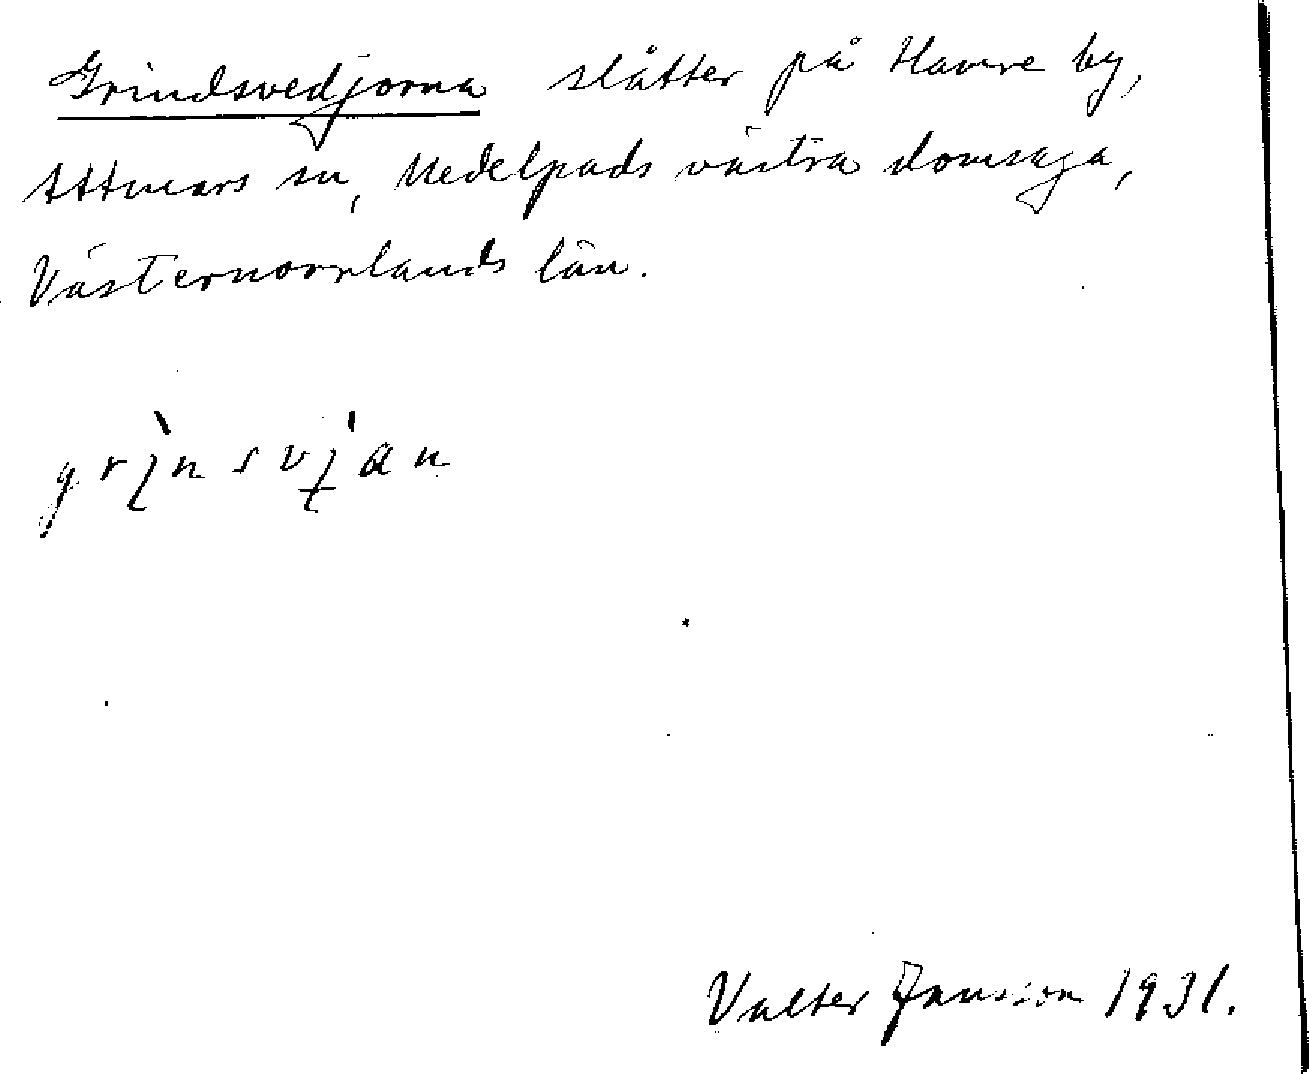 Grindsvedjorna slåtter på Hamre by,
Attmars sn, Medelpads västra domsaga,
Västernorrlands län.
Valter Jansson 1931.